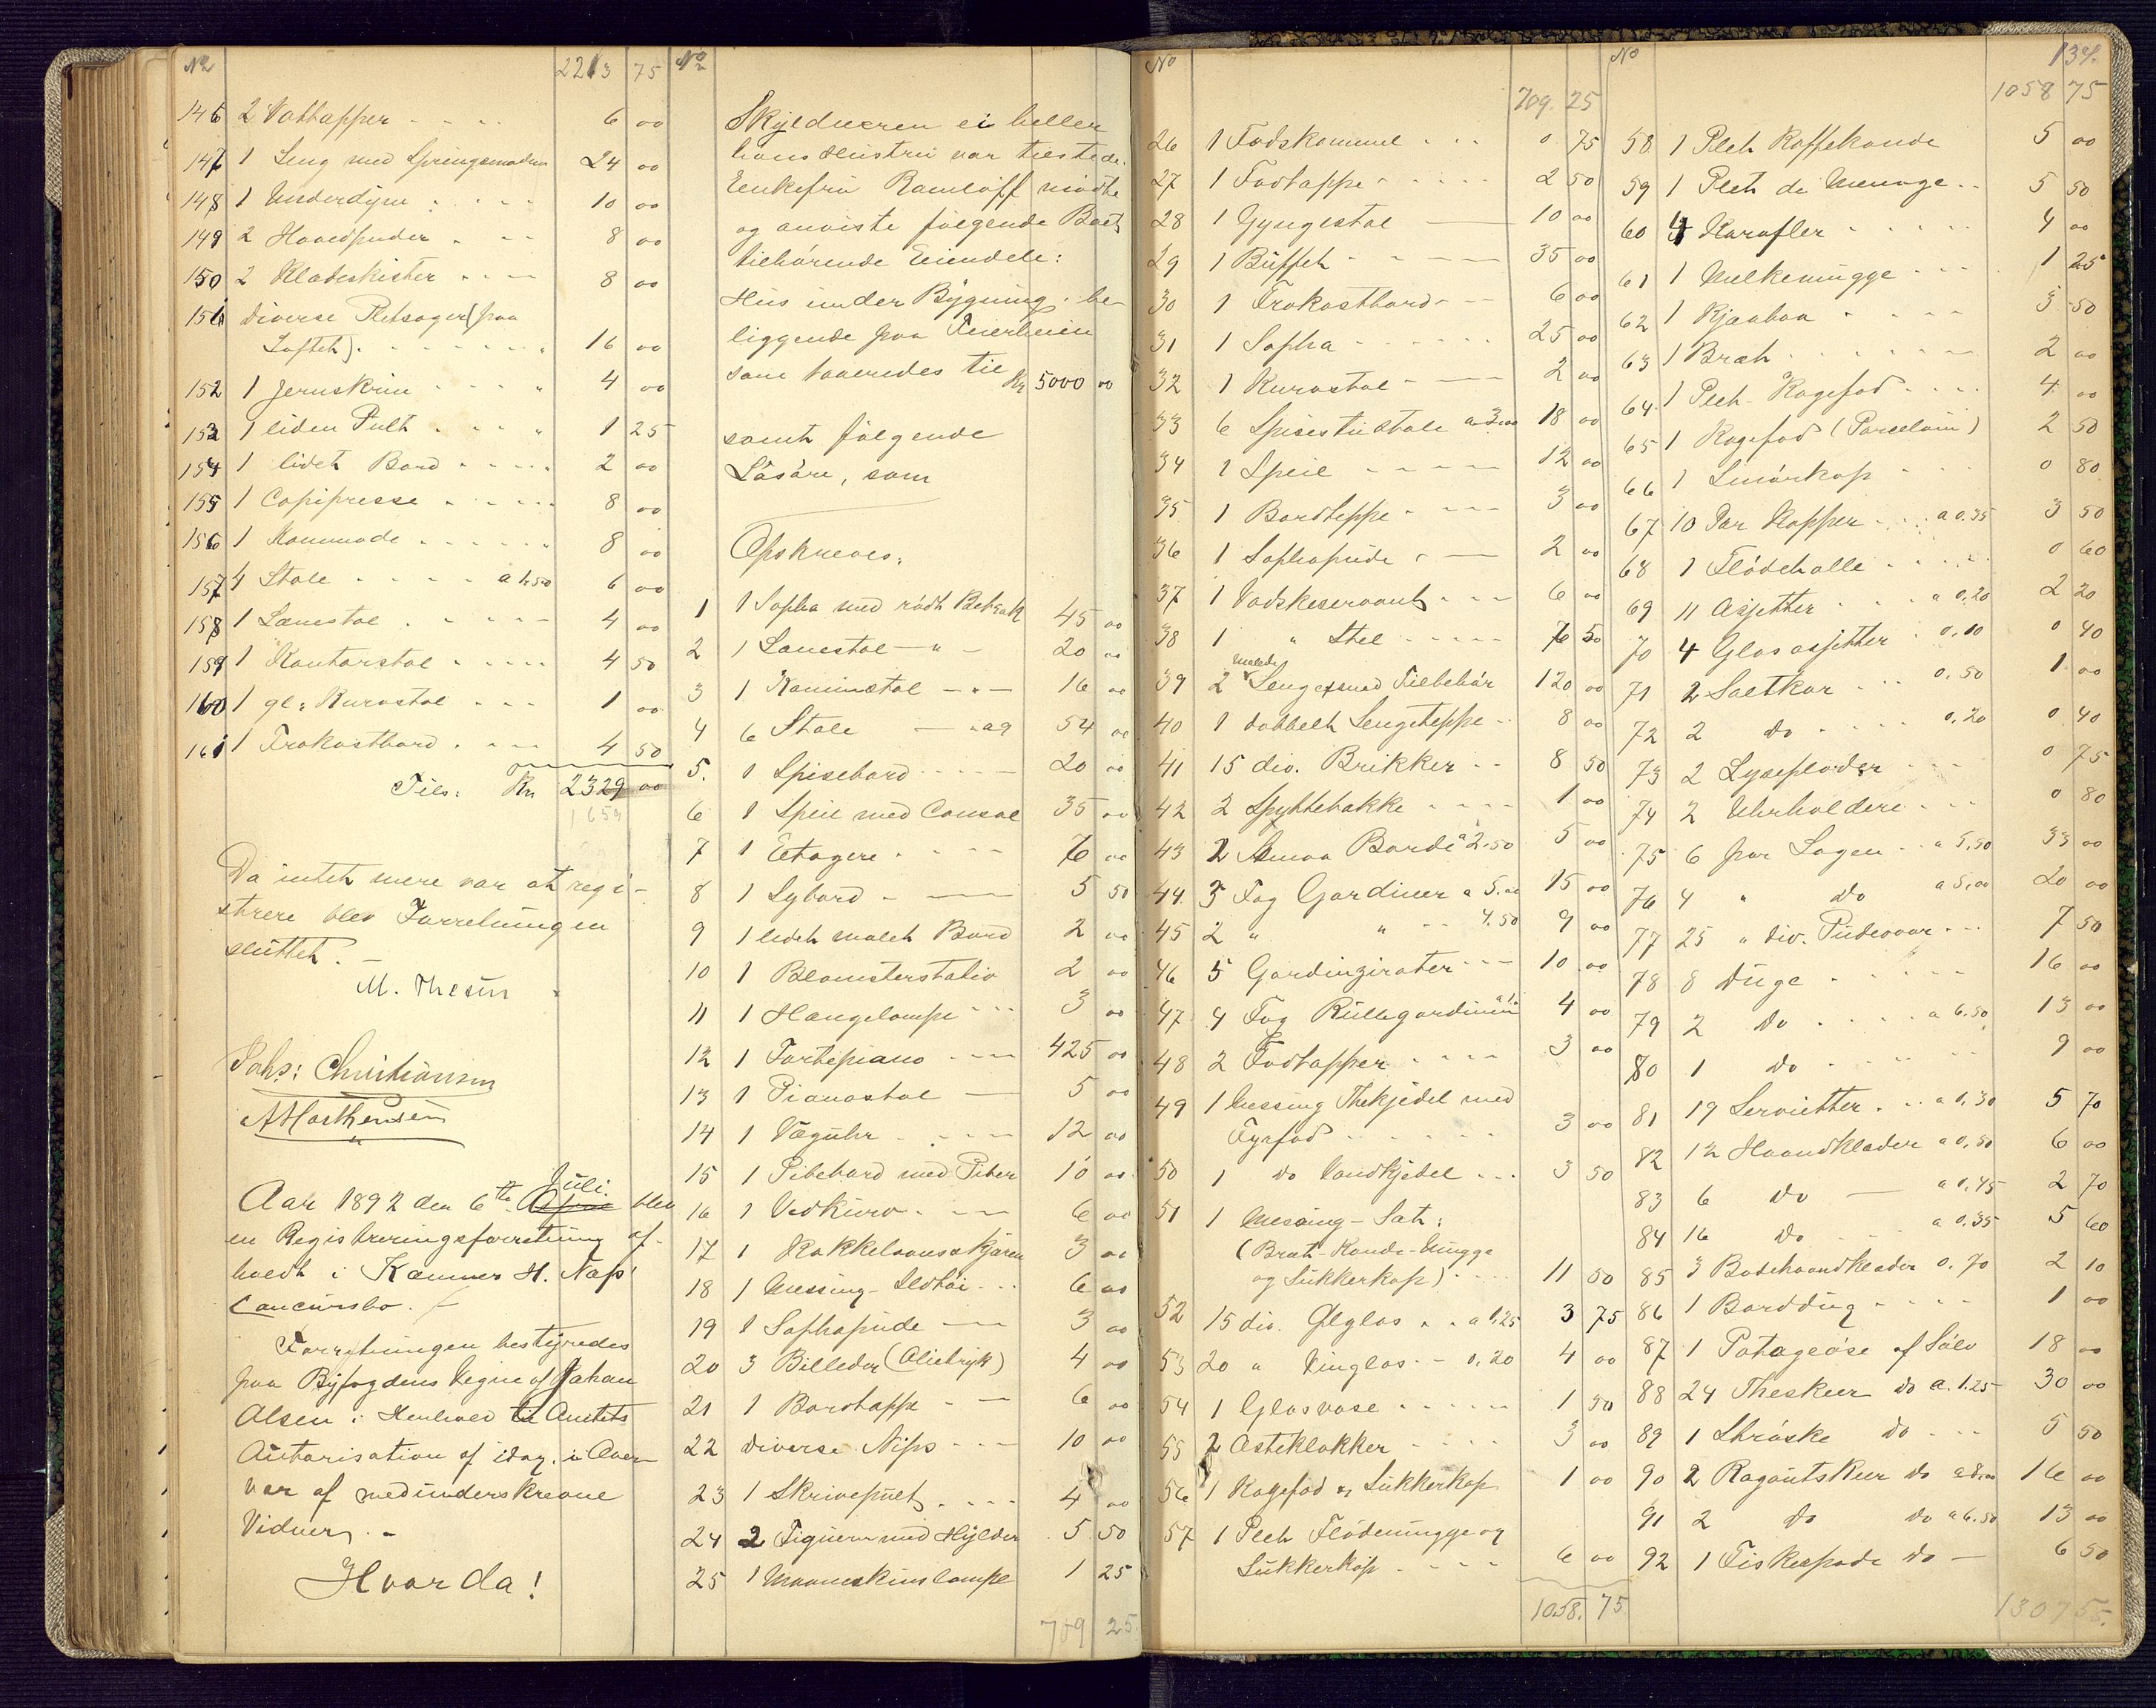 No 2213 75
146 2 Vattapper - - - - 6 00
147 1 Seng med Springmadras 24 00
148 1 Underdyne . . . . 10 00
149 2 Hovedpuder . - - 8 00
150 2 Kladeskister - - - 8 00
151 diverse Pletsager (paa
Loftet). - - - - - 16 00
152 1 Jernskrin - - - 4 00
153 1 liden Pult - - - 1 25
154 1 lidet Bord - - - 2 00
155 1 Copipresse - - - 8 00
156 1 Kommode - - - - 8 00
157 4 Stole - - - - a 1.50 6 00
158 1 Lænestol . - - - 4 00
159 1 Kontorstol - - - 4 50
160 1 gl: Kurvstol - - - 1 00
161 1 Frokostbord . - - - 4 50
Tils: Kr 2329 00
Da intet mere var at regi-
strere blev Forretningen
sluttet. -
M. Thesen
Johs: Christiansen
A Marthensen
Aar 1892 den 6te Juli blev
en Registreringsforretning af-
holdt i Kammer H. Næss'
Concursbo. -
Forretningen bestyredes
paa Byfogdens Vegne af Johan
Olsen i Henhold til Amtets
Autorisation af idag, i Over-
vær af medunderskrevne
Vidner. -
Hvorda!
No
Skyldneren ei heller
hans Hustru var tilstede.
Enkefru Ramløff mødte
og anviste følgende Boet
tilhørende Eiendele:
Hus under Bygning, be-
liggende paa Feierheien
som taxeredes til Kr 5000 00
samt følgende
Løsøre, som
Opskreves:
1 1 Sopha med rødt Betræk 45 00
2 1 Lænestol - " - 20 00
3 1 Kaminstol - " - 16 00
4 6 Stole - " a 9 54 00
5. 1 Spisebord - - - - 20 00
6 1 Speil med Consol 35 00
7 1 Etagere - - - - 6 00
8 1 Sybord - - 5 50
9 1 lidet malet Bord 2 00
10 1 Blomsterstativ 2 00
11 1 Hængelampe - - - 3 00
12 1 Fortepiano - - - 425 00
13 1 Pianostol - 5 00
14 1 Væguhr - - - - 12 00
15 1 Pibebord med Piber 10 00
16 1 Vedkurv - - - 6 00
17 1 Kakkelovnsskjærm 3 00
18 1 Messing-Ildtøi - - - 6 00
19 1 Sophapude - - 3 00
20 3 Billeder (Olietryk) 4 00
21 1 Bordtappe - - 6 00
22 diverse Nips - - - 10 00
23 1 Skrivepult - - - - 4 00
24 2 Figurer med Hylder 5 50
25 1 Maaneskinslampe 1 25
709 25
No 709. 25
26 1 Fodskammel - - - 0 75
27 1 Fodtappe - - - - 2 50
28 1 Gyngestol - 10 00
29 1 Buffet - - - - 35 00
30 1 Frokostbord - - 6 00
31 1 Sopha - - - - - 25 00
32 1 Kurvstol - - 2 00
33 6 Spisestustole a 3.00 18 00
34 1 Speil - - - - - 12 00
35 1 Bordteppe - - - 3 00
36 1 Sophapude - - 2 00
37 1 Vadskeservant - - - 6 00
38 1 " Stel - - - - 6 50
39 2 malede Senge med Tilbehør 120 00
40 1 dobbelt Sengeteppe - - 8 00
41 15 div. Brikker - - 8 50
42 2 Spyttebakke - - - - 1 00
43 2 Smaa Borde a 2.50 5 00
44 3 Fag Gardiner a 5.00 15 00
45 2 " " - - 4.50 9 00
46 5 Gardingirater - - - 10 00
47 4 Fag Rullegardiner a 1.- 4 00
48 2 Fodtapper - - - - 3 00
49 1 Messing Thekjedel med
Fyrfad - - - - - - 3 00
50 1 do Vandkjedel - - - 3 50
51 1 Messing-Sat:
(Bræt-Kande-Mugge
og Sukkerkop) - - - - 11 50
52 15 div. Ølglas - - a 0.25 3 75
53 20 " Vinglas - - 0.20 4 00
54 1 Glasvase - - - - - 1 50
55 2 Osteklokker - - - - 3 00
56 1 Kagefad og Sukkerkop 1 00
57 1 Plet Flødemugge og
Sukkerkop - - - - 6 00
1058. 75
No 139.
1058 75
58 1 Plet Kaffekande 5 00
59 1 Plet de Menage - - 5 50
60 4 Karafler - - - - - 4 00
61 1 Melkemugge - - - 1 25
62 1 Kjøbaa - - - - 3 50
63 1 Bræt - - - - - - 2 00
64 1 Plet-Kagefad - - - - 4 00
65 1 Kagefad (Porcelain) 2 50
66 1 Smørkop - - - 0 80
67 10 Par Kopper - - - a 0.35 3 50
68 1 Flødebolle - - - - - 0 60
69 11 Asjetter - - - a 0.20 2 20
70 4 Glasasjetter - 0.10 0 40
71 2 Saltkar - - - 0.50 1 00
72 2 do - - - - 0.20 0 40
73 2 Lyseplader - - - 0 75
74 2 Uhrholdere - - - 0 80
75 6 par Lagen - - a 5.50 33 00
76 4 " do a 5.00 20 00
77 25 " div. Pudevaar - - - 7 50
78 8 Duge - - - - - - 16 00
79 2 do - - - - a 6.50 13 00
80 1 do - - - - - - 9 00
81 19 Servietter - - - a 0.30 5 70
82 12 Haandklæder a 0.50 6 00
83 6 do - a 0.45 2 70
84 16 do - - a 0.35 5 60
85 3 Badehaandklæder 0.70 2 10
86 1 Borddug - - - - 1 00
87 1 Potageøse af Sølv 18 00
88 24 Theskeer do a 1.25 30 00
89 1 Strøske do - - - 5 50
90 2 Ragoutskeer do a 8.00 16 00
91 2 do do a 6.50 13 00
92 1 Fiskespade do - 6 50
1307 55.